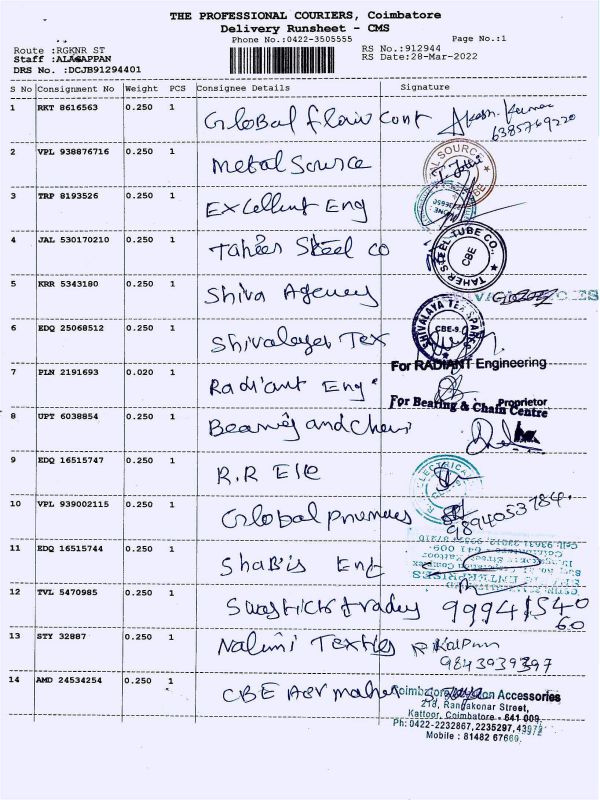 THE PROFESSIONAL COURIERS, Coimbatore
Delivery Runsheet - CMS
Phone No.:0422-3505555
Page No.:1
Route :RGKNR ST
RS No.:912944
Staff :ALAGAPPAN
RS Date:28-Mar-2022
DRS No. :DCJB91294401
S No Consignment No Weight PCS Consignee Details Signature
1 RKT 8616563 0.250 1 Global flow cont Akash. Kumar
6385769220
2 VPL 938876716 0.250 1 Metal Source
3 TRP 8193526 0.250 1 Excellent Eng
4 JAL 530170210 0.250 1 Taher Steel co TAHER STEEL TUBE CO., CBE
5 KRR 5343180 0.250 1 Shiva Agency
6 EDQ 25068512 0.250 1 Shivalaya Tex SHIVALAYA TEX SPARES CBE-9.
For RADIANT Engineering
7 PLN 2191693 0.020 1 Radiant Eng
Proprietor
For Bearing & Chain Centre
8 UPT 6038854 0.250 1 Bearing and Chain
9 EDQ 16515747 0.250 1 R.R Ele
10 VPL 939002115 0.250 1 Global 9894053784.
11 EDQ 16515744 0.250 1 Shabis Eng
12 TVL 5470985 0.250 1 Swastick traders 9994154060
13 STY 32887 0.250 1 Nalini Textiles
9843939397
14 AMD 24534254 0.250 1 CBE Accessories
218, Rangakonar Street,
Kattoor, Coimbatore - 641 009.
Ph: 0422-2232867, 2235297,
Mobile : 81482 67660.